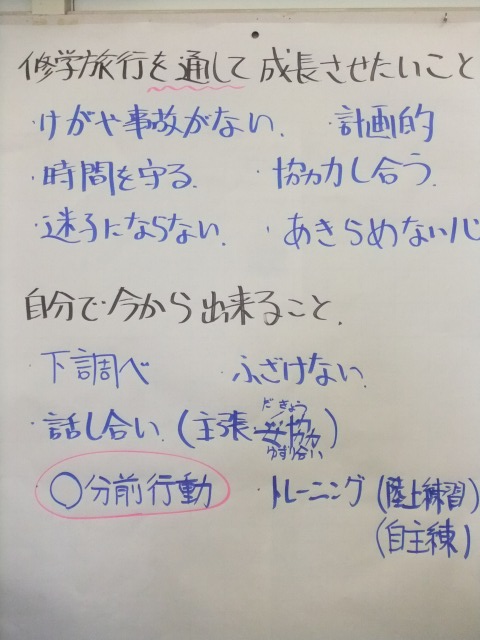 修学旅行を通して成長させたいこと
・けがや事故がない. ・計画的
・時間を守る. ・協力し合う.
・迷子にならない. ・あきらめない心
自分で今から出来ること.
・下調べ ・ふざけない.
だきょう
・話し合い. (主張・妥協)
ゆずり合い
・○分前行動 ・トレーニング (陸上練習)
(自主練)